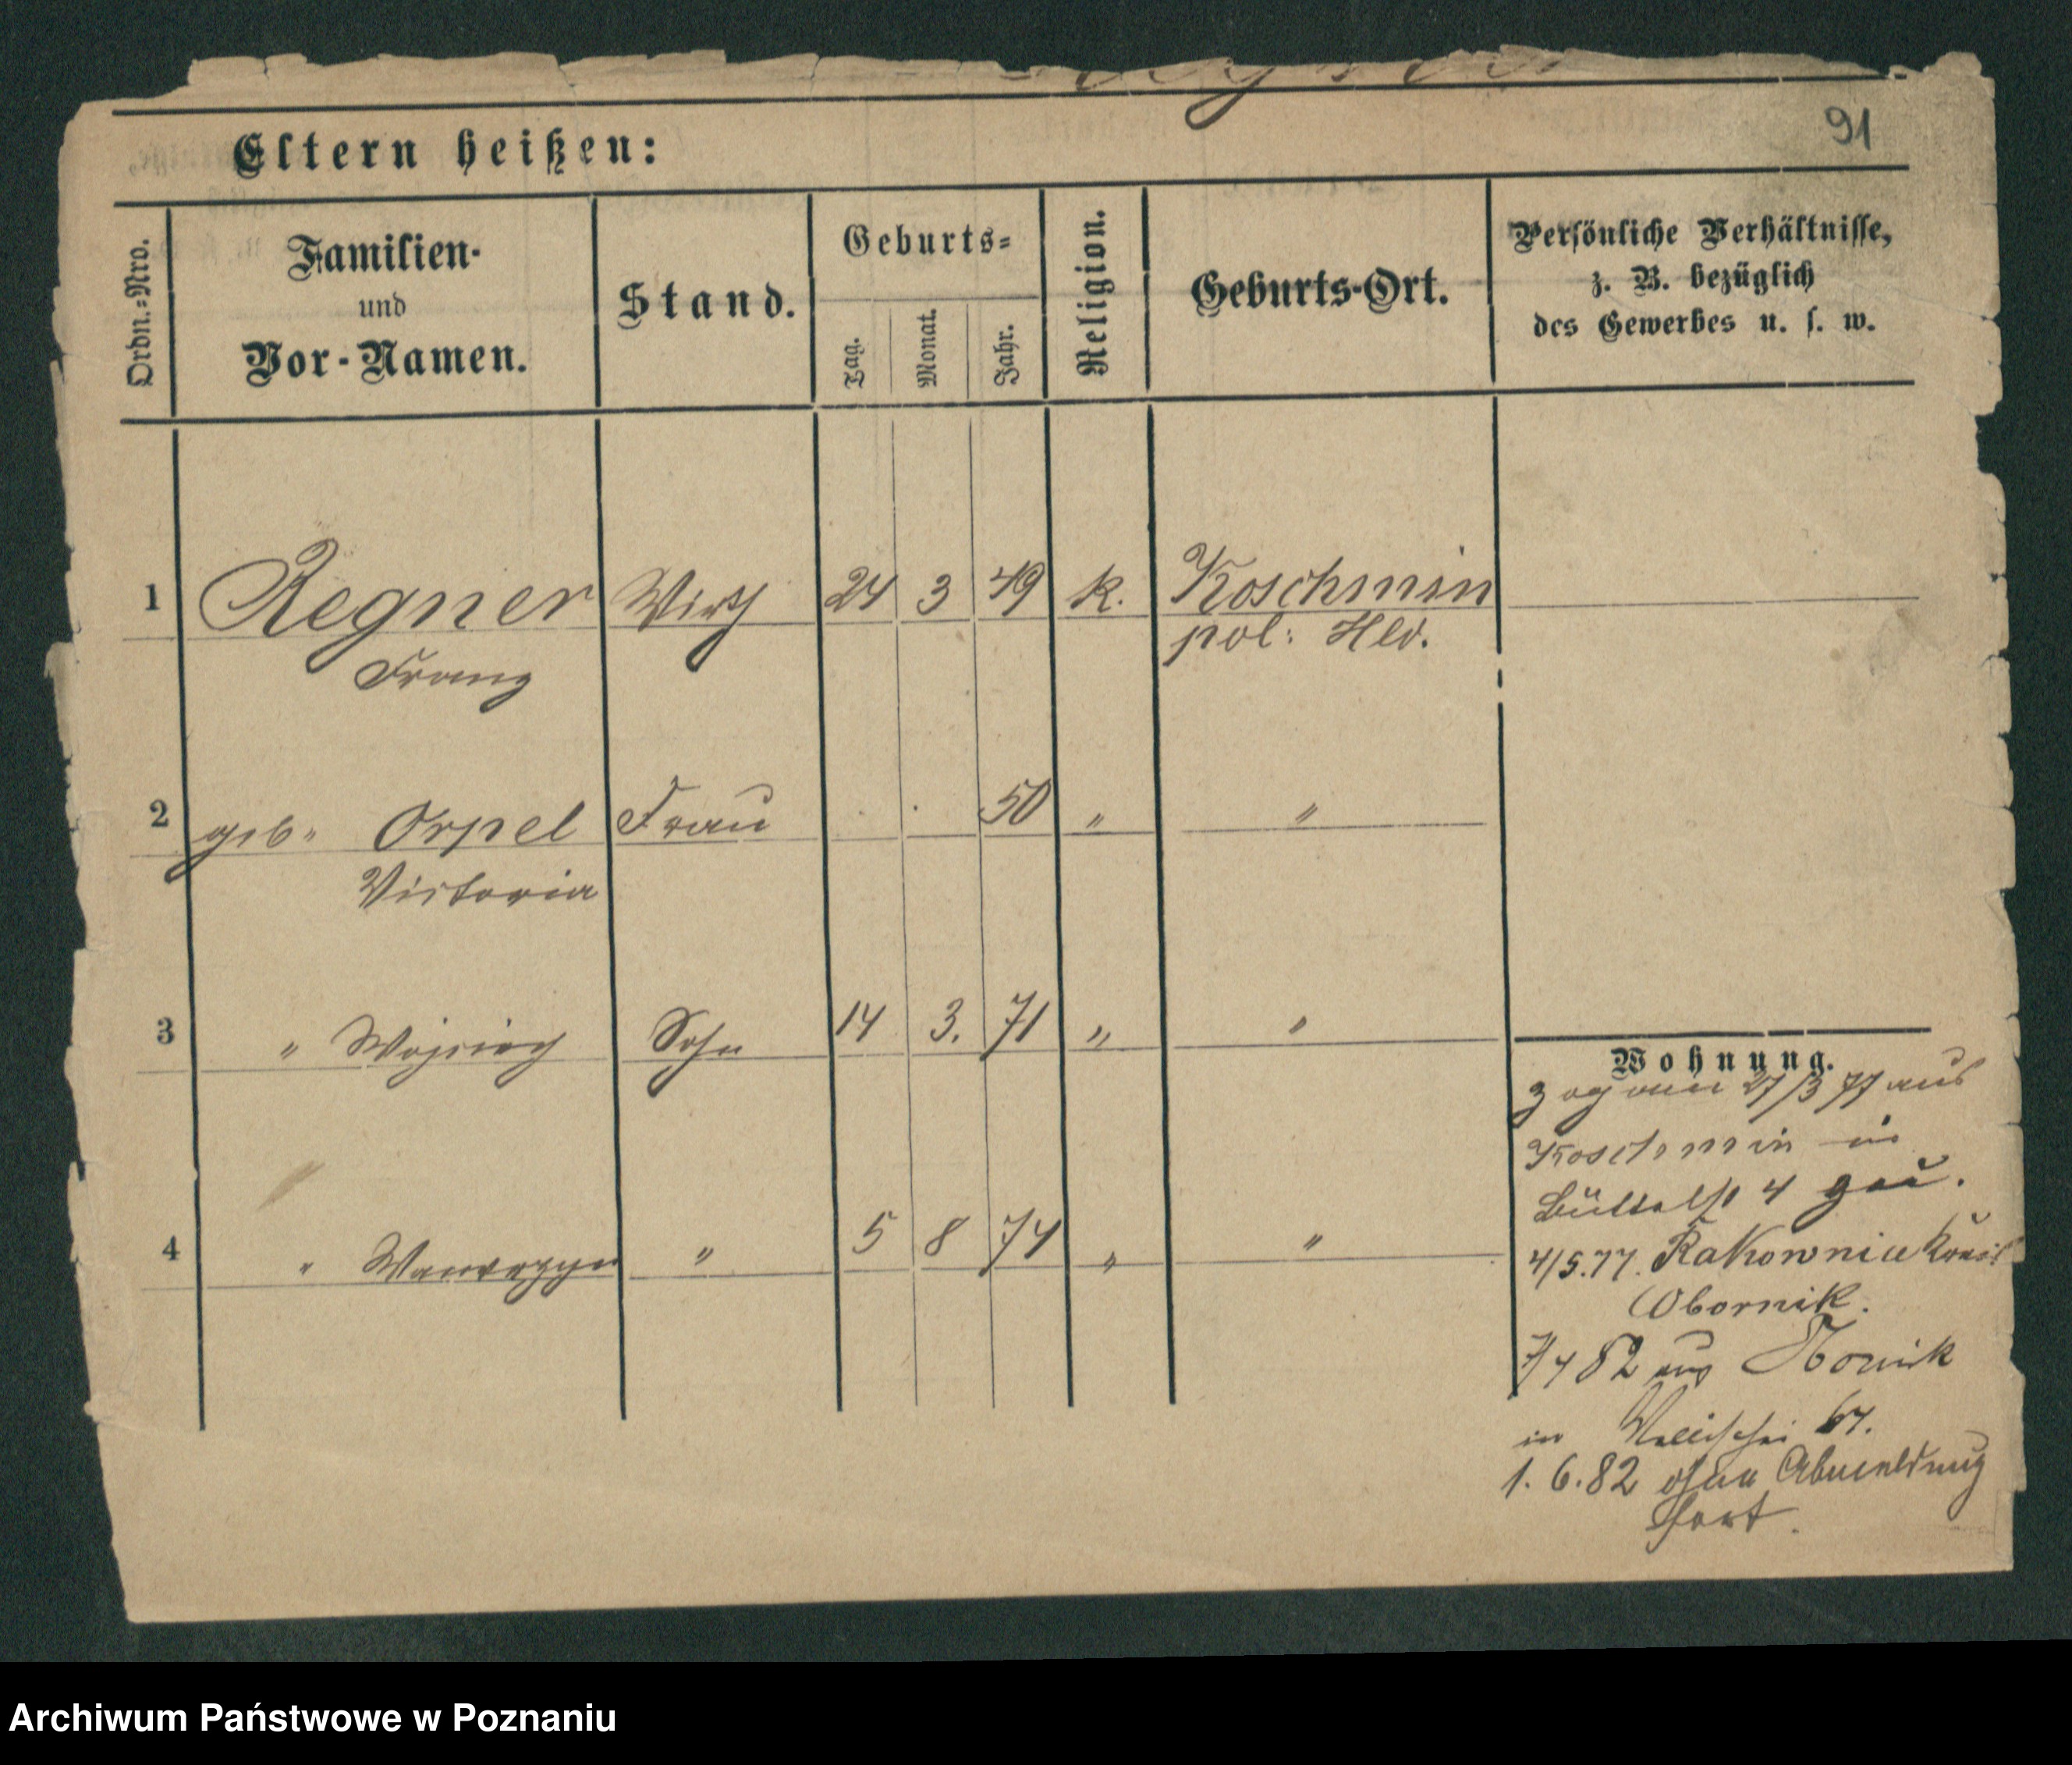 91
Eltern heißen:
Ordn.=Nro.
Familien-
und
Vor-Namen.
Stand.
Geburts=
Tag.
Monat.
Jahr.
Religion.
Geburts-Ort.
Persönliche Verhältnisse,
z. B. bezüglich
des Gewerbes u. s. w.
1 Regner Wirth 24 3 49 k. Koschmin
Franz pol: Hld.
2 geb. Orpel Frau 50 " "
Victoria
3 " Woyciech Sohn 14 3. 71 " "
4 " Wawrzyn " 5 8 74 " "
Wohnung.
zog am 27/3 77 aus
Koschmin in
4
4/5.77. Rakownia Kreis
Obornik.
7/4 82 aus
in Wallischei 67.
1. 6. 82 ohne Abmeldung
fort.
Archiwum Państwowe w Poznaniu